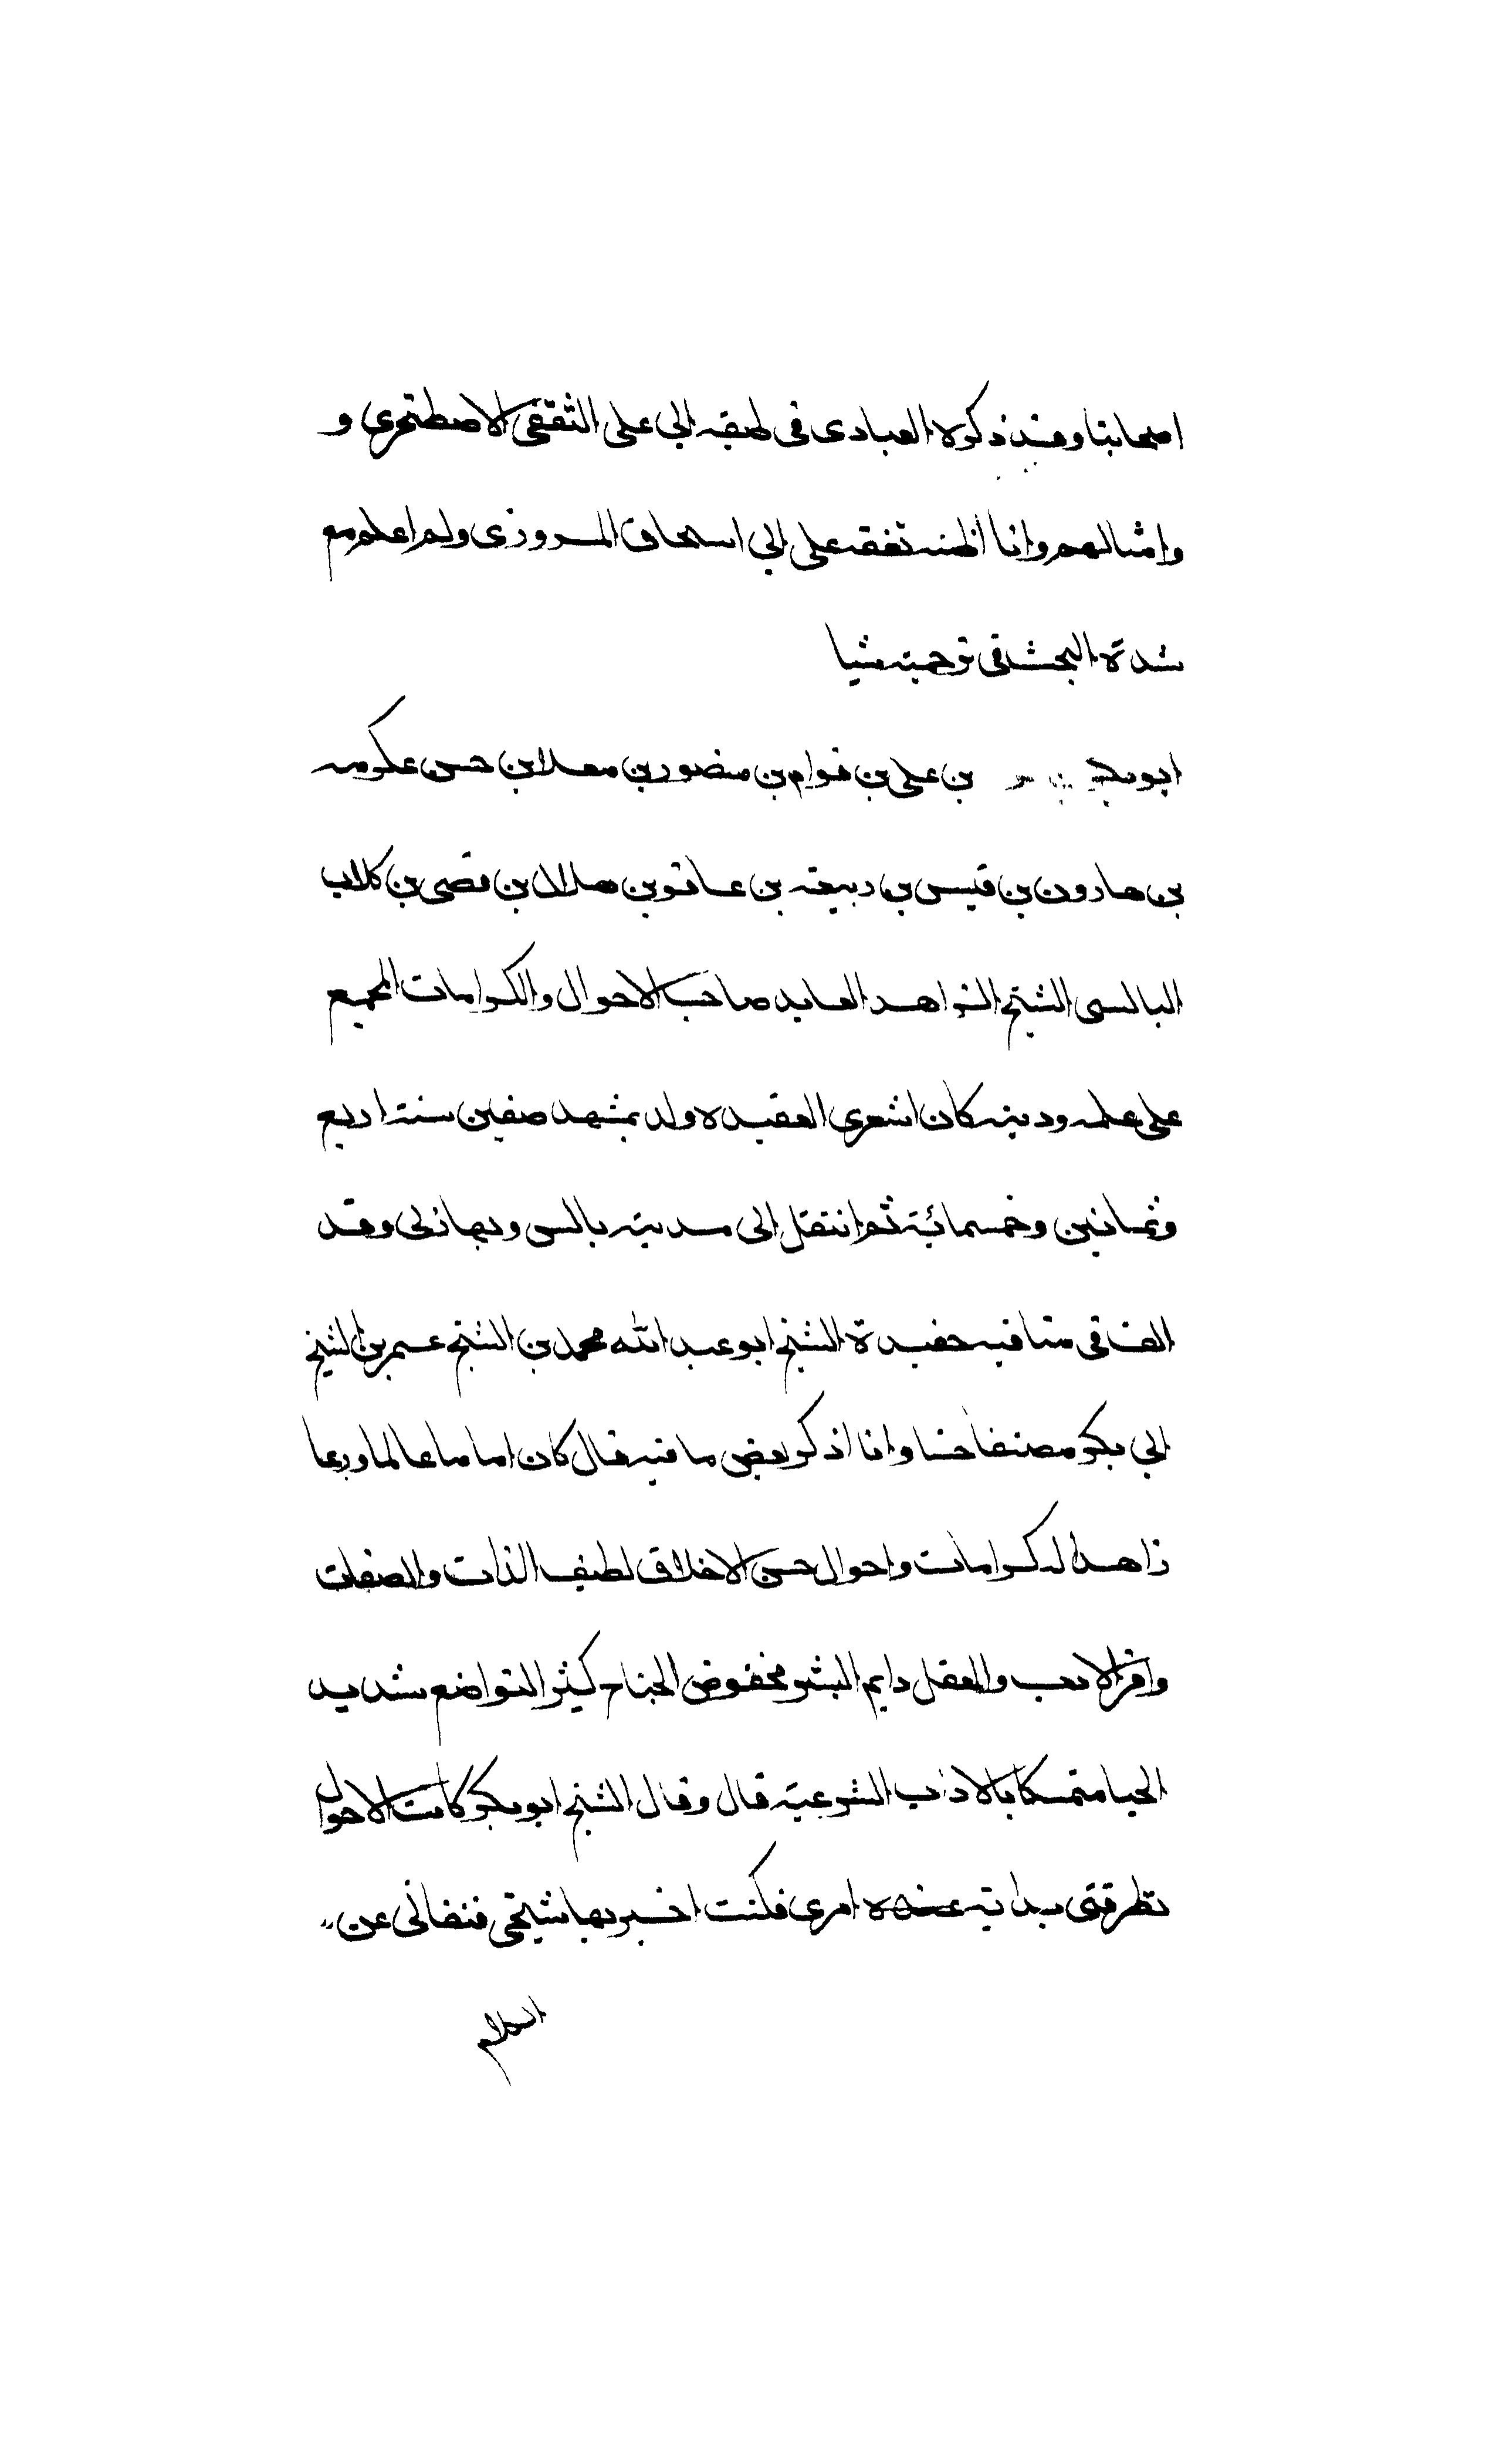 اصحابنا وقد ذكره العبادى فى طبقه ابى على الثقفى الاصطخرى و
وامثالهم وانا اظنه تفقه على ابى اسحاق المروزى ولم اعلم مع
شدة البحث فى ترحمته شيا
ابو بكر بن على بن قوام بن منصور بن معلا بن حسن عكرمه
بن هارون بن قيس بن ربيعه بن عامر بن هلال بن قصى بن كلاب
البالسى الشيخ الزاهد العابد صاحب الاحوال والكرامات المجمع
على علمه ودينه كان اشعرى العقيده ولد بمشهد صفين سنة اربع
وثمانين وخمسمائة ثم انتقل الى مدينة بالس وبها ربى وقد
الف فى مناقبه حفيدة الشيخ ابو عبد الله محمد بن الشيخ عمر بن الشيخ
ابى بكر مصنفا حسنا وانا اذكر بعض ما فيه قال كان اماما عالما ورعا
زاهدا له كرامات واحوال حسن الاخلاق لطيف الذات والصفات
وافر الادب والعقل دايم البشر مخفوض الجناح كثير التواضع شديد
الحيا متمسكا بالاداب الشرعية قال وقال الشيخ ابو بكر كانت الاحوال
تطرقنى بداية امرى فكنت اخبر بها شيخى فنهانى عن
الكلام